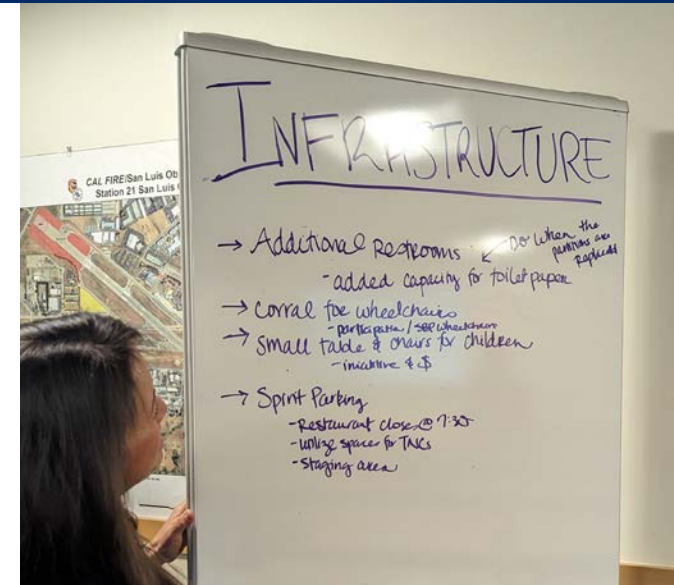 CAL FIRE/San Luis Ob
Station 21 San Luis
INFRASTRUCTURE
→ Additional Restrooms ← Do when the
partitions are
replaced
- added capacity for toilet paper
→ corral for wheelchairs
- / SBP wheelchairs
→ Small table & chairs for children
- initiative & $
→ Sprint Parking
- Restaurant close @ 7:30
- utilize spaces for TNCs
- Staging area